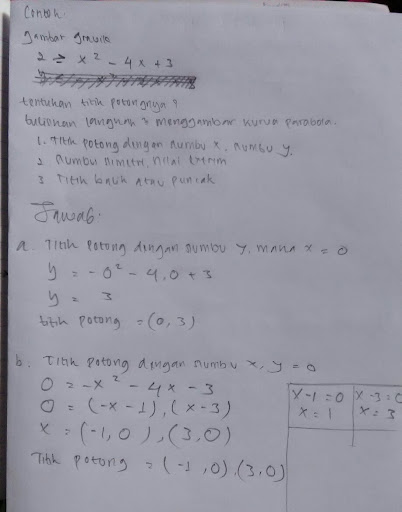 Contoh.
Gambar gravik
2 = x² - 4x + 3
tentukan titik potongnya ?
tuliskan langkah² menggambar kurva parabola.
1. Titik potong dengan sumbu x, sumbu y.
2 Sumbu simetri, nilai
3 Titik balik atau Puncak
Jawab:
a. Titik Potong dengan sumbu y, maka x = 0
y = -0² - 4.0 + 3
y = 3
titik potong = (0,3)
b. Titik Potong dengan sumbu x, y = 0
0 = -x² - 4x - 3
0 = (-x - 1), (x - 3)
x = (-1,0), (3,0)
Titik potong = (-1,0), (3,0)
x - 1 = 0 x - 3 = 0
x = 1 x = 3